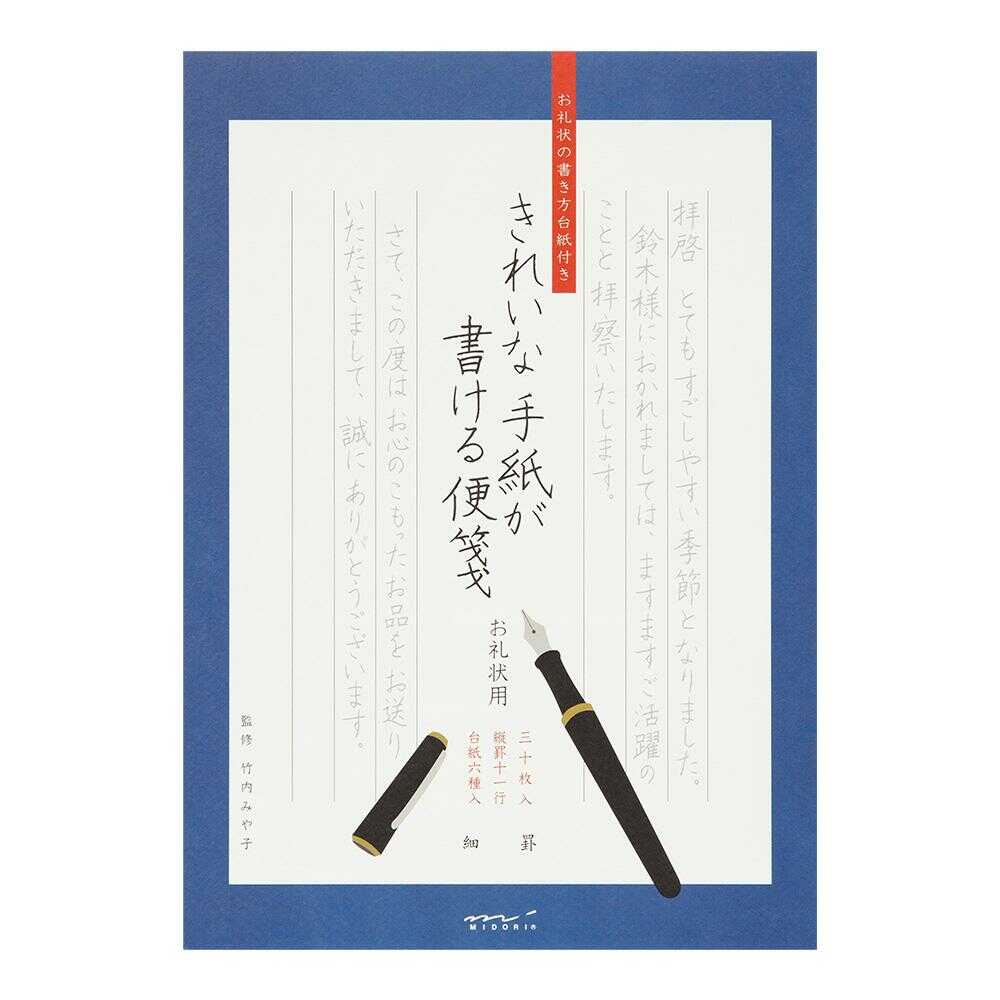 お礼状の書き方台紙付き
拝啓 とてもすごしやすい季節となりました。
鈴木様におかれましては、ますますご活躍の
ことと拝察いたします。
きれいな手紙が
書ける便箋
お礼状用
さて、この度はお心のこもったお品をお送り
いただきまして、誠にありがとうございます。
三十枚入
縦罫十一行
台紙六種入
細罫
監修 竹内みや子
MIDORI®